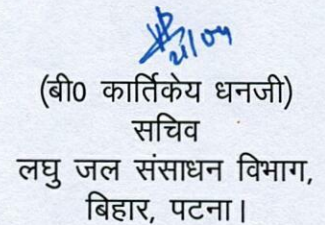 21/05
(बी0 कार्तिकेय धनजी)
सचिव
लघु जल संसाधन विभाग,
बिहार, पटना।